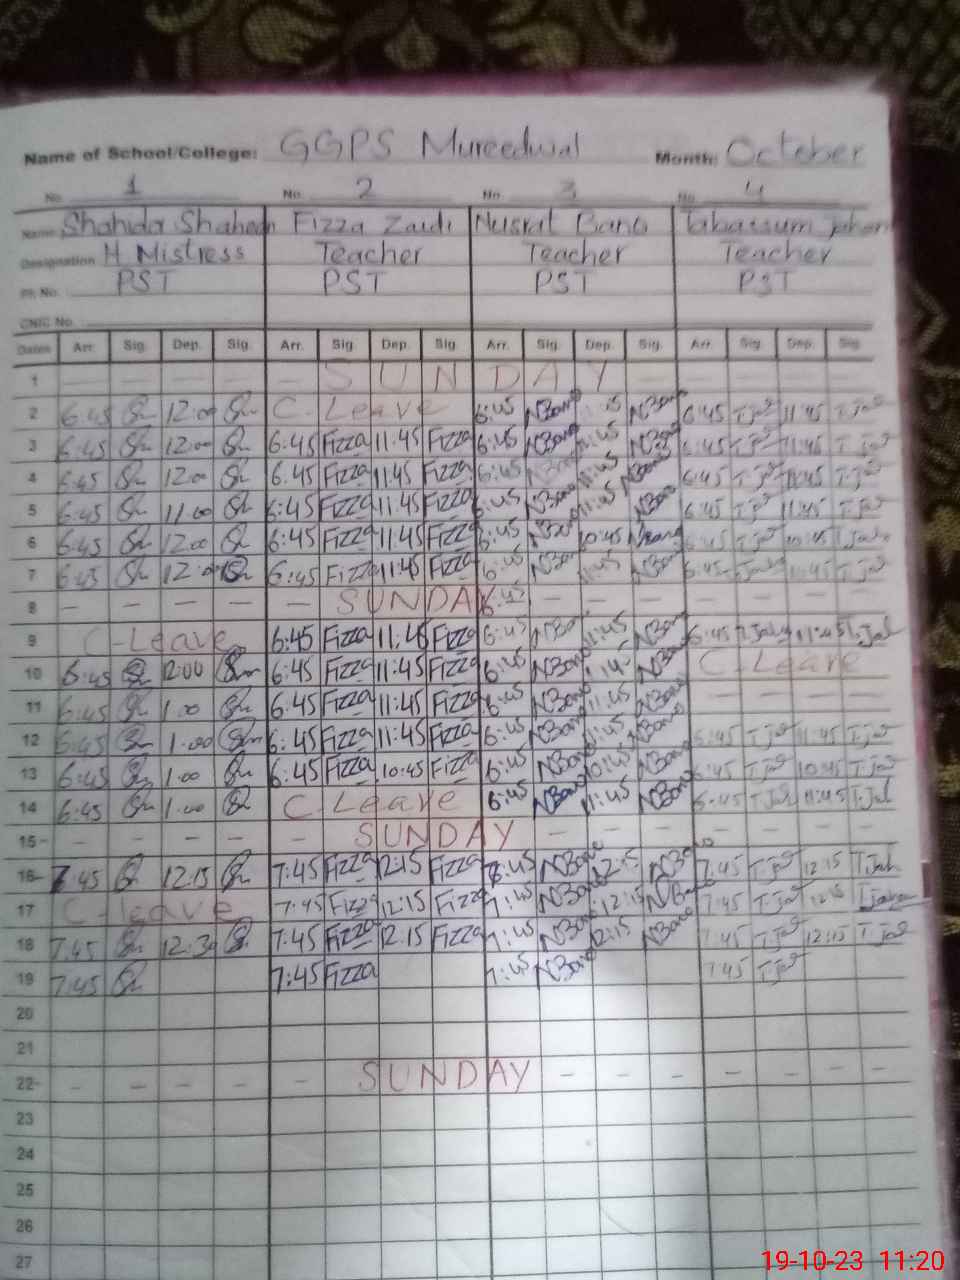 Name of School/College: GGPS Mureedwal Month: October
No. 1 No. 2 No. 3 No. 4
Name Shahida Shaheen Fizza Zaidi Nusrat Bano Tabassum Jahan
Designation H Mistress Teacher Teacher Teacher
PST PST PST PST
CNIC No.
Dates Arr. Sig. Dep. Sig. Arr. Sig. Dep. Sig. Arr. Sig. Dep. Sig. Arr. Sig. Dep. Sig.
1 — — — — — SUNDAY — — — — —
2 6:45 12:00 C-Leave 6:45 NBano NBano 6:45 T.Jah 11:45 T.Jah
3 6:45 12:00 6:45 Fizza 11:45 Fizza 6:45 NBano 11:45 NBano 6:45 T.Jah 11:45 T.Jah
4 6:45 12:00 6:45 Fizza 11:45 Fizza 6:45 NBano 11:45 NBano 6:45 T.Jah 11:45 T.Jah
5 6:45 11:00 6:45 Fizza 11:45 Fizza 6:45 NBano 11:45 NBano 6:45 T.Jah 11:45 T.Jah
6 6:45 12:00 6:45 Fizza 11:45 Fizza 6:45 NBano 10:45 NBano 6:45 T.Jah 10:45 T.Jah
7 6:45 12:00 6:45 Fizza 11:45 Fizza 6:45 NBano 11:45 NBano 6:45 T.Jah 11:45 T.Jah
8 — — — — — SUNDAY 6:45 — — — — — — —
9 C-Leave 6:45 Fizza 11:45 Fizza 6:45 NBano 11:45 NBano 6:45 T.Jah 11:45 T.Jah
10 6:45 12:00 6:45 Fizza 11:45 Fizza 6:45 NBano 11:45 NBano C-Leave
11 6:45 1:00 6:45 Fizza 11:45 Fizza 6:45 NBano 11:45 NBano — — — —
12 6:45 1:00 6:45 Fizza 11:45 Fizza 6:45 NBano 11:45 NBano 6:45 T.Jah 11:45 T.Jah
13 6:45 1:00 6:45 Fizza 10:45 Fizza 6:45 NBano 10:45 NBano 6:45 T.Jah 10:45 T.Jah
14 6:45 1:00 C-Leave 6:45 NBano 11:45 NBano 6:45 T.Jah 11:45 T.Jah
15 — — — — — — SUNDAY — — — — — — —
16 7:45 12:15 7:45 Fizza 12:15 Fizza 7:45 NBano 12:15 NBano 7:45 T.Jah 12:15 T.Jah
17 C-leave 7:45 Fizza 12:15 Fizza 7:45 NBano 12:15 NBano 7:45 T.Jah 12:15 T.Jahan
18 7:45 12:30 7:45 Fizza 12:15 Fizza 7:45 NBano 12:15 NBano 7:45 T.Jah 12:15 T.Jah
19 7:45 7:45 Fizza 7:45 NBano 7:45 T.Jah
20
21
22 — — — — — — SUNDAY — — — — — — —
23
24
25
26
27
19-10-23 11:20